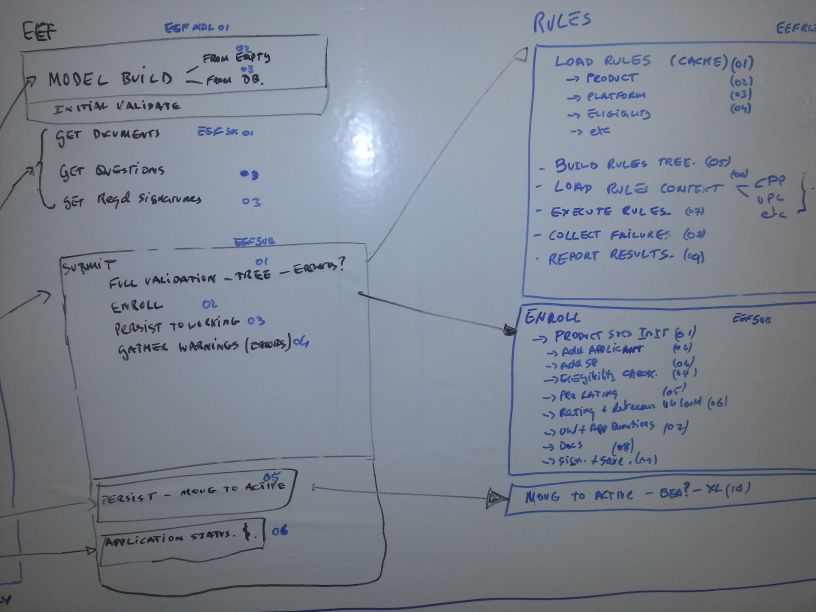 EEF
EEFMDL 01
MODEL BUILD
02
FROM EMPTY
03
FROM DB.
INITIAL VALIDATE
GET DOCUMENTS
01
GET QUESTIONS
GET Reqd SIGNATURES 03
EEFSUB
SUBMIT
01
FULL VALIDATION - TREE - ERRORS?
ENROLL 02
PERSIST TO WORKING 03
GATHER WARNINGS (ERRORS) 04
05
PERSIST - MOVE TO ACTIVE
APPLICATION STATUS. 06
RULES
LOAD RULES (CACHE) (01)
→ PRODUCT (02)
→ PLATFORM (03)
→ ELIGIBILITY (04)
→ etc
- BUILD RULES TREE. (05)
- LOAD RULES CONTEXT (06)
CPP
UPL
etc
- EXECUTE RULES. (07)
- COLLECT FAILURES. (08)
- REPORT RESULTS. (09)
ENROLL EEFSUB
→ PRODUCT SVCS INIT (01)
→ Add APPLICANT (02)
→ Add SP
→ Eligibility CHECK. (04)
→ Pre RATING (05)
→ Rating + determin UW level (06)
→ UW + App Questions
→ DOCS (08)
→ Sign. + Save. (09)
MOVE TO ACTIVE - BEA? - XL (10)